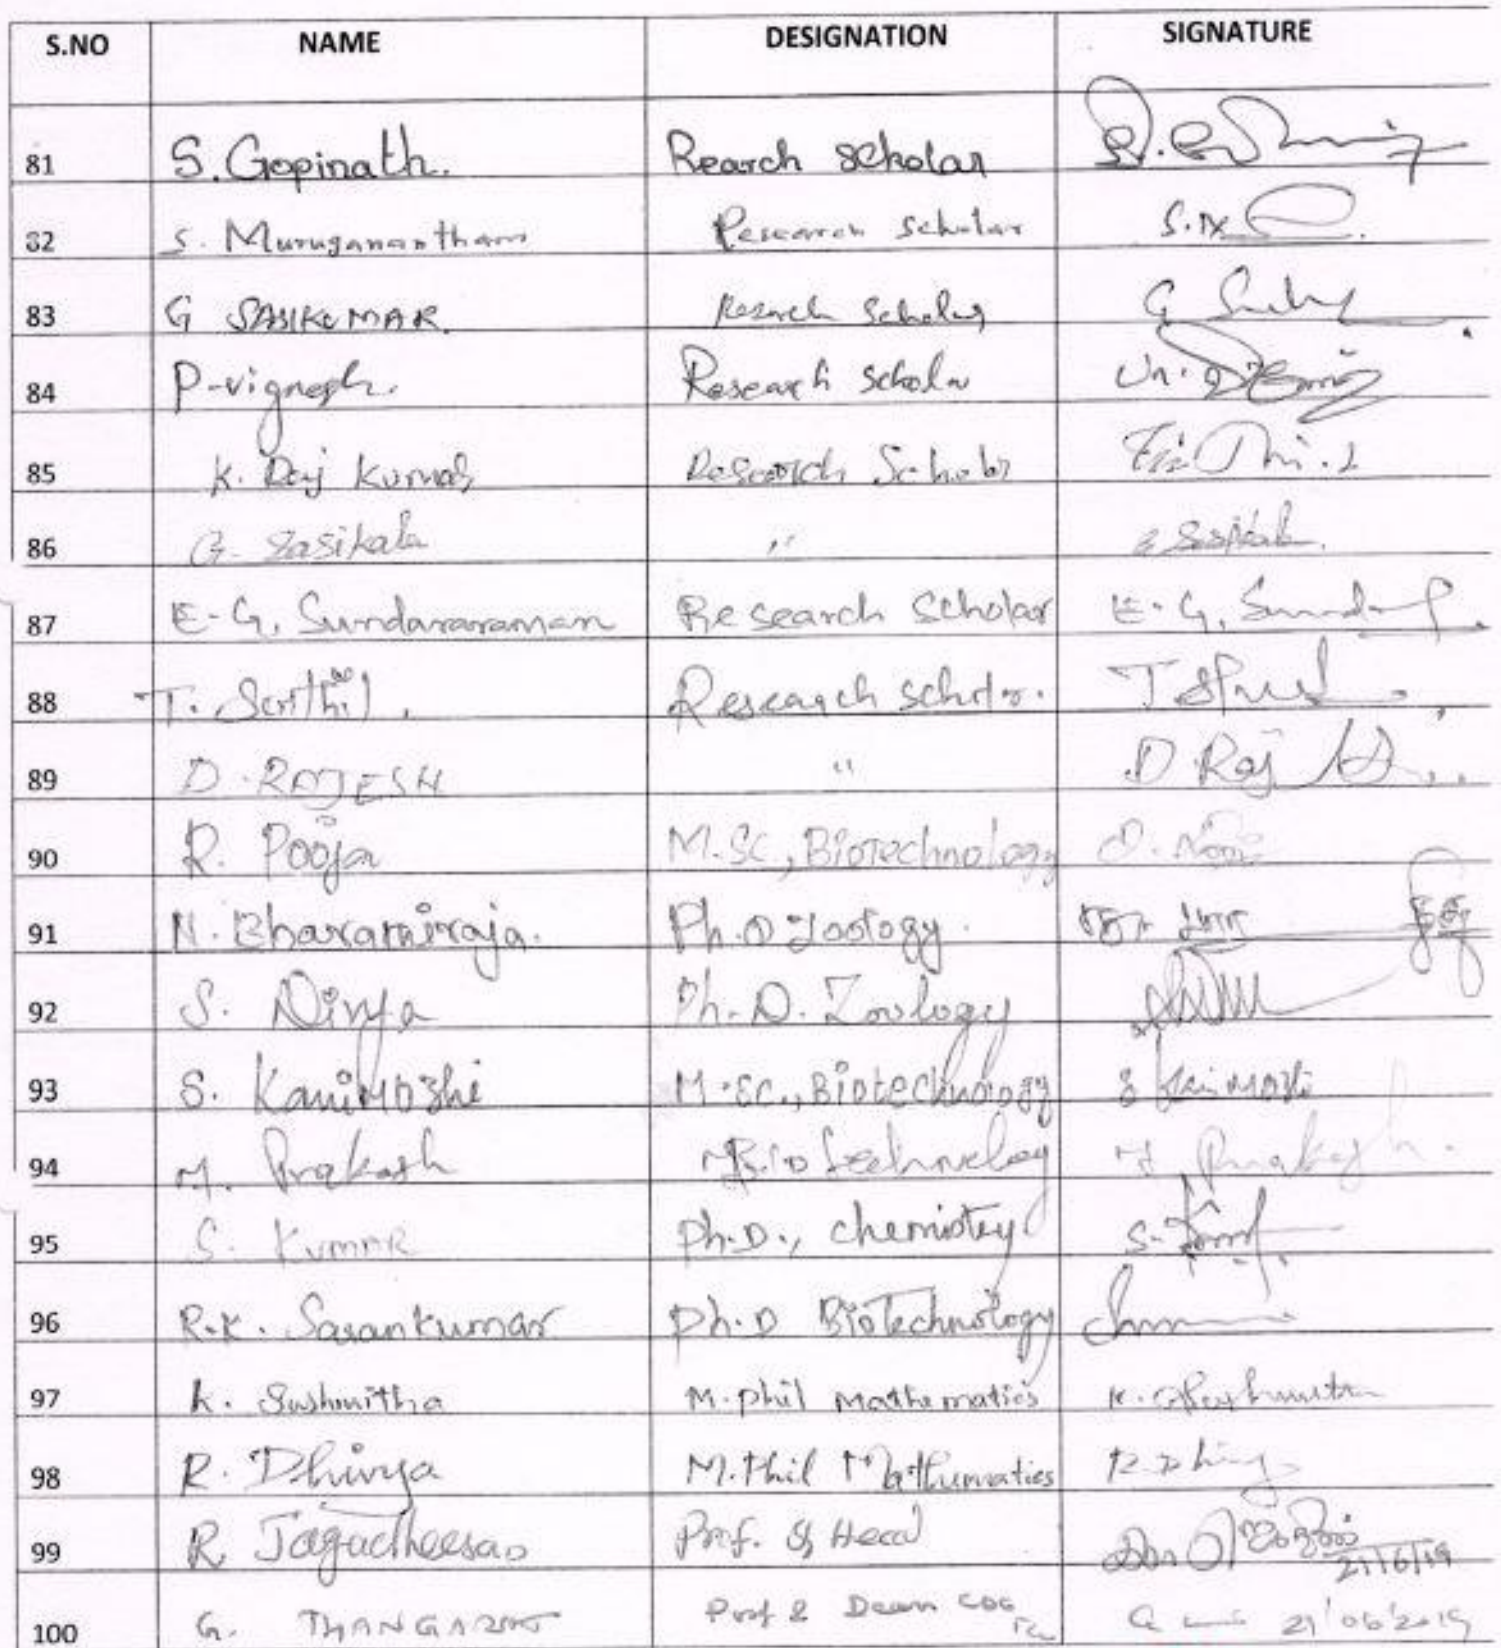 S.NO NAME DESIGNATION SIGNATURE
81 S. Gopinath. Rearch Scholar
82 S. Muruganantham Research Scholar S.M
83 G SASIKUMAR. Research Scholar G
84 P. vignesh. Research Scholar
85 K. Raj Kumar Research Scholar
86 G. Sasikala " G Sasikala
87 E. G. Sundararaman Research Scholar E. G. Sund
88 T. Senthil. Research Scholar. T
89 D. RAJESH " D Raj
90 R. Pooja M.SC., Biotechnology
91 N. Bharathiraja. Ph.D Zoology.
92 S. Divya Ph.D. Zoology
93 S. Kanimozhi M.SC., Biotechnology S Kanimozhi
94 M. Prakash Biotechnology M. Prakash.
95 S. KUMAR Ph.D., chemistry S.
96 R.K. Sarankumar Ph.D BioTechnology
97 K. Sushmitha M.phil Mathematics K. Sushmitha
98 R. Dhivya M.Phil Mathematics R. Dhivya
99 R. Jagadheesan Prof. & Head 21/6/19
100 G. THANGARAJ Prof & Dean 21/06/2019